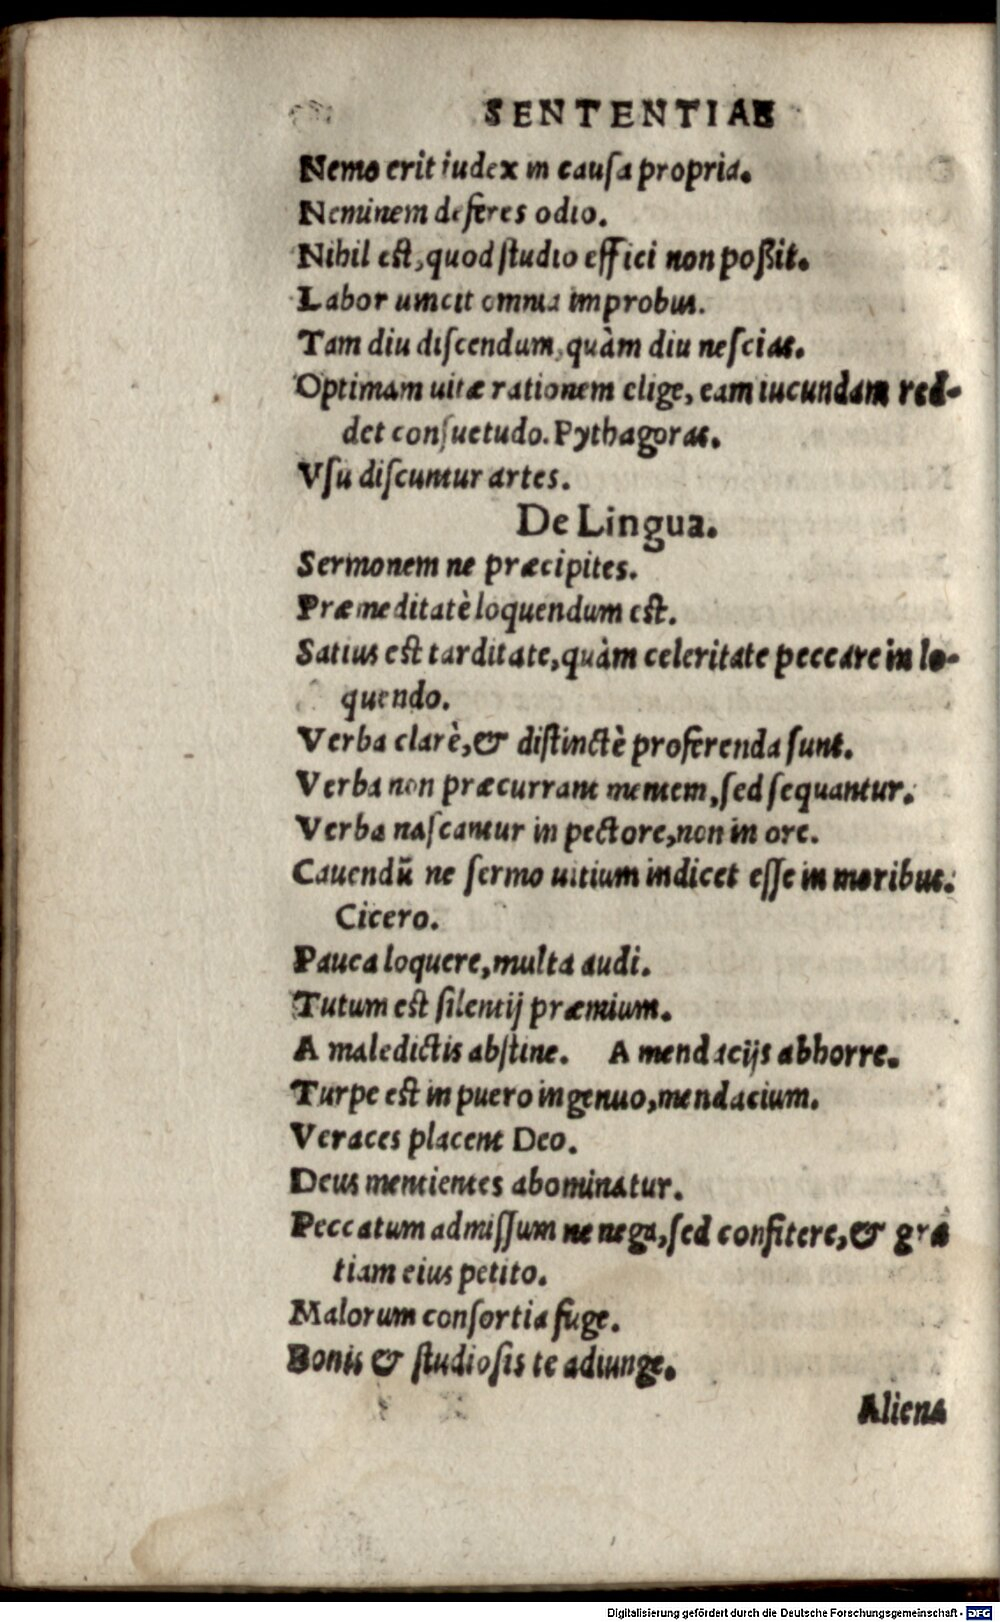 SENTENTIAE
Nemo erit iudex in causa propria.
Neminem deferes odio.
Nihil est, quod studio effici non poßit.
Labor uincit omnia improbus.
Tam diu discendum, quàm diu nescias.
Optimam uitæ rationem elige, eam iucundam red-
det consuetudo. Pythagoras.
Vsu discuntur artes.
De Lingua.
Sermonem ne præcipites.
Præmeditatè loquendum est.
Satius est tarditate, quàm celeritate peccare in lo-
quendo.
Verba clarè, & distinctè proferenda sunt.
Verba non præcurrant mentem, sed sequantur.
Verba nascantur in pectore, non in ore.
Cauendū ne sermo uitium indicet esse in moribus.
Cicero.
Pauca loquere, multa audi.
Tutum est silentij præmium.
A maledictis abstine. A mendacijs abhorre.
Turpe est in puero ingenuo, mendacium.
Veraces placent Deo.
Deus mentientes abominatur.
Peccatum admissum ne nega, sed confitere, & gra
tiam eius petito.
Malorum consortia fuge.
Bonis & studiosis te adiunge.
Aliena
Digitalisierung gefördert durch die Deutsche Forschungsgemeinschaft - DFG